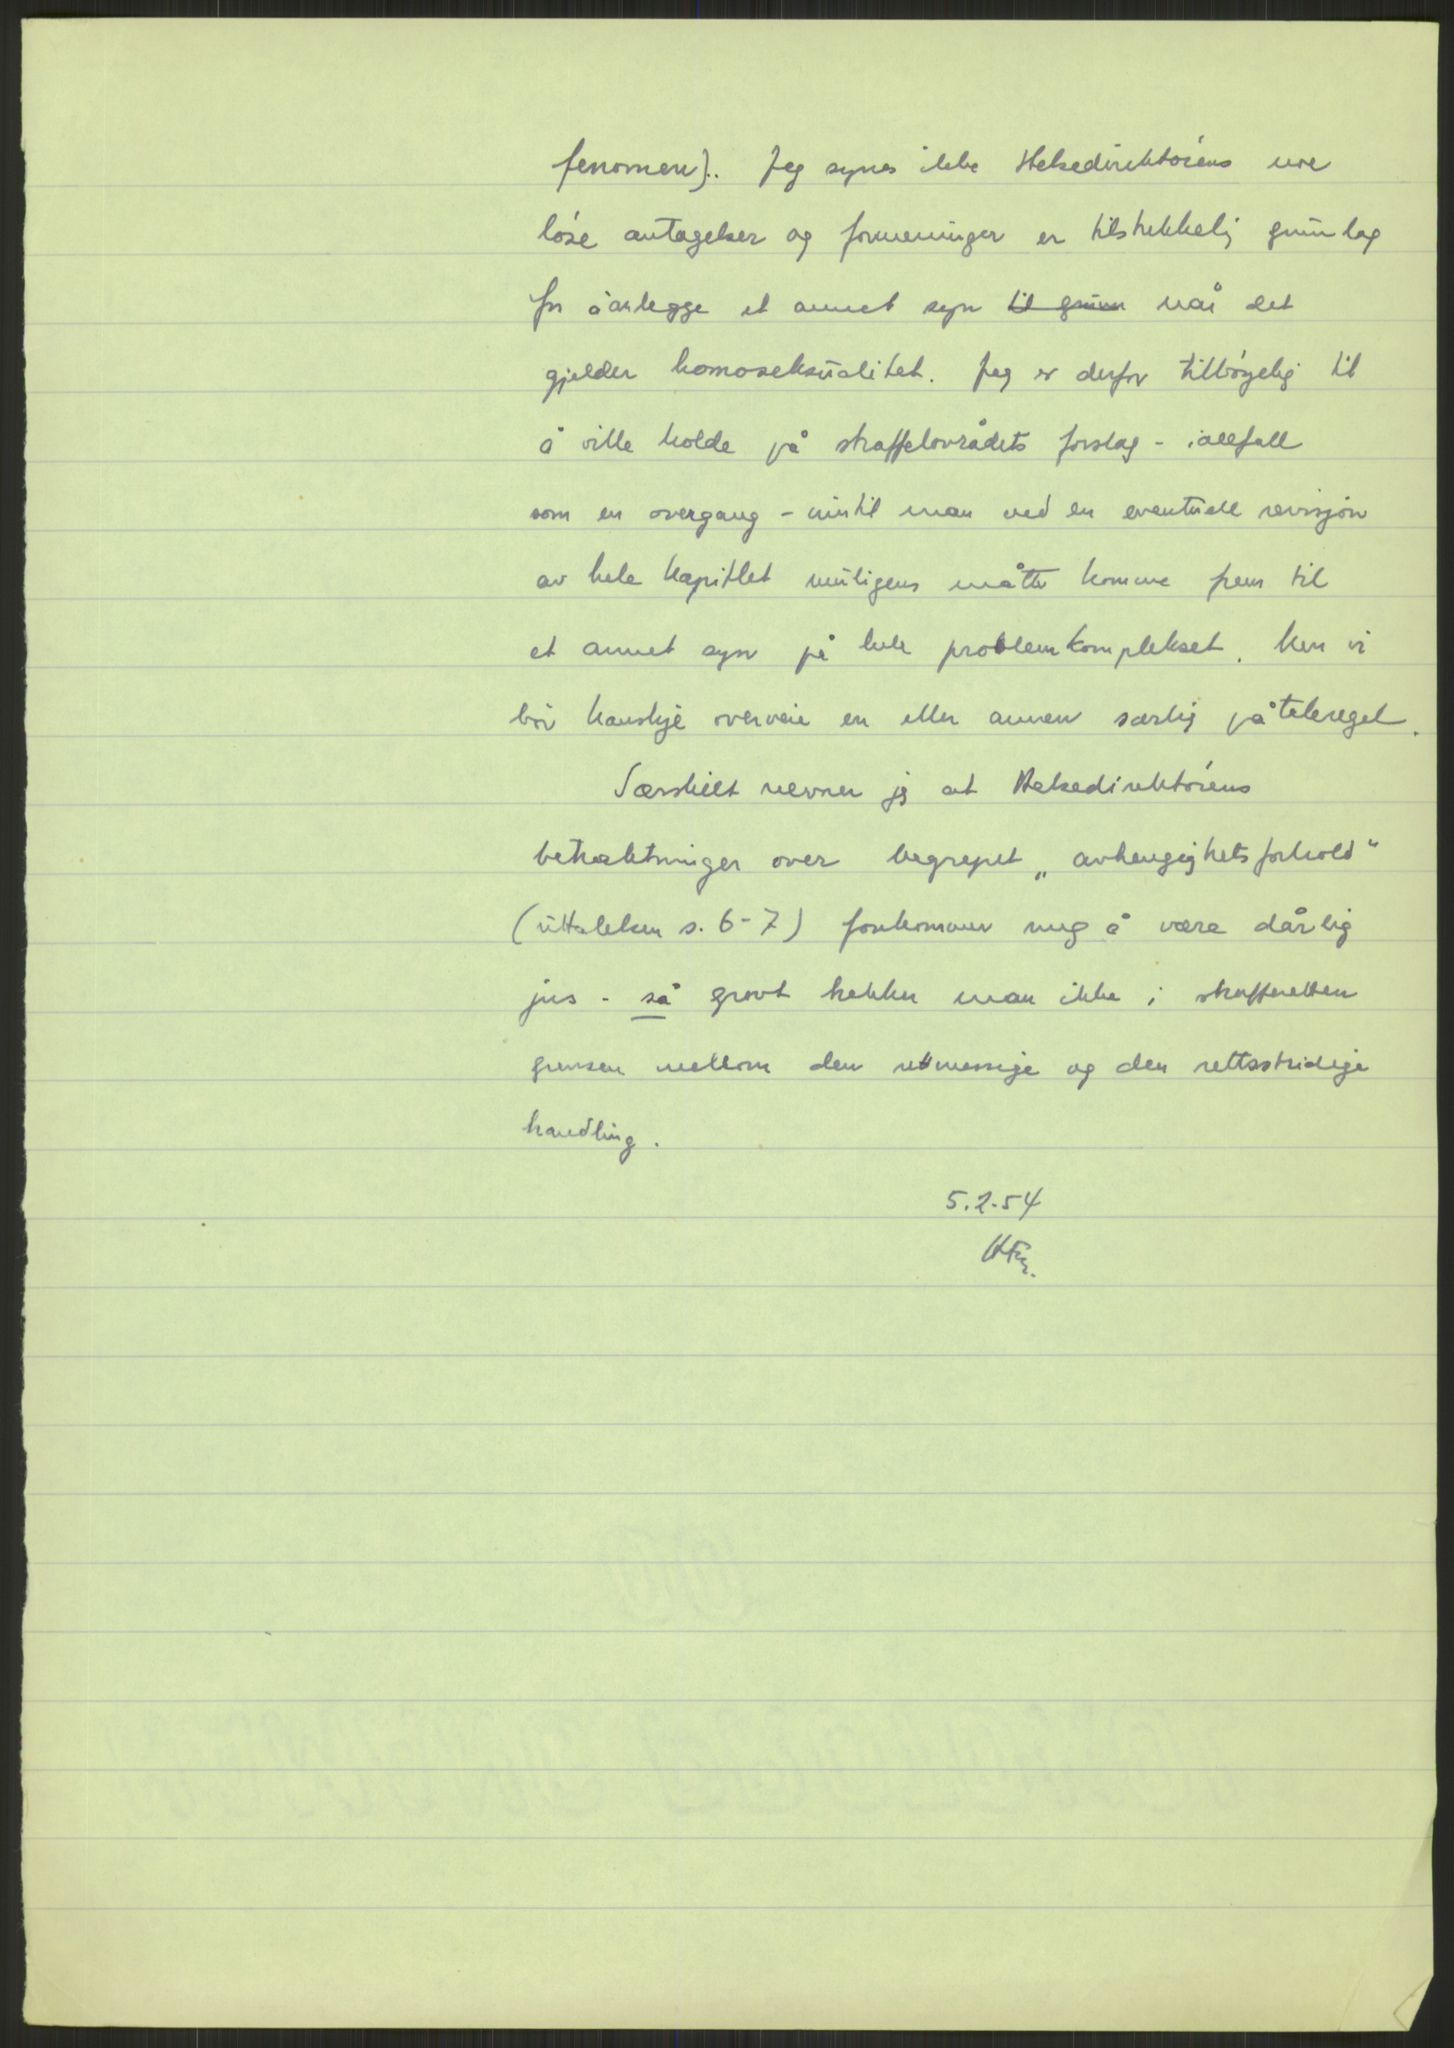 fenomen). Jeg synes ikke Helsedirektörens noe
löse antagelser og formeninger er tilstrekkelig grunnlag
for å anlegge et annet syn til grunn når det
gjelder homoseksualitet. Jeg er derfor tilböyelig til
å ville holde på straffelovrådets forslag - iallfall
som en overgang - inntil man ved en eventuell revisjon
av hele kapitlet muligens måtte komme frem til
et annet syn på hele problemkomplekset. Men vi
bör kanskje overveie en eller annen særlig påtaleregel.
Særskilt nevner jeg at Helsedirektörens
betraktninger over begrepet „avhengighetsforhold“
(uttalelsen s. 6-7) forekommer meg å være dårlig
jus - så grovt trekker man ikke i strafferetten
grensen mellom den rettmessige og den rettsstridige
handling.
5.2.54